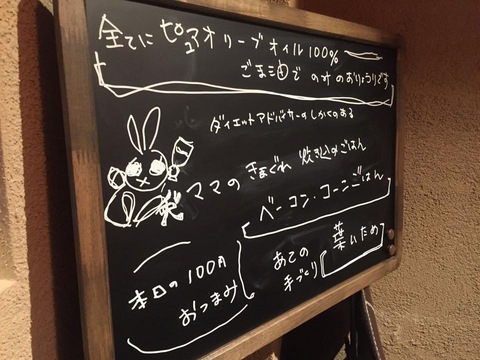 全てにピュアオリーブオイル100%
ごま油でのみのおりょうりです
ダイエットアドバイザーのしかくのある
ママのきまぐれ 炊き込みごはん
ベーコン・コーンごはん
本日の100円
おつまみ
あての
手づくり
葉いため